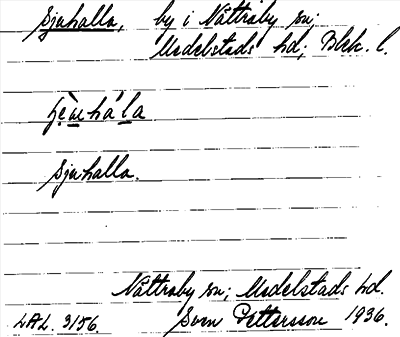 Sjuhalla, by i Nättraby sn;
Medelstads hd; Blek. l.
Sjuhalla.
Nättraby sn; Medelstads hd.
LAL. 3156. Sven Pettersson 1936.